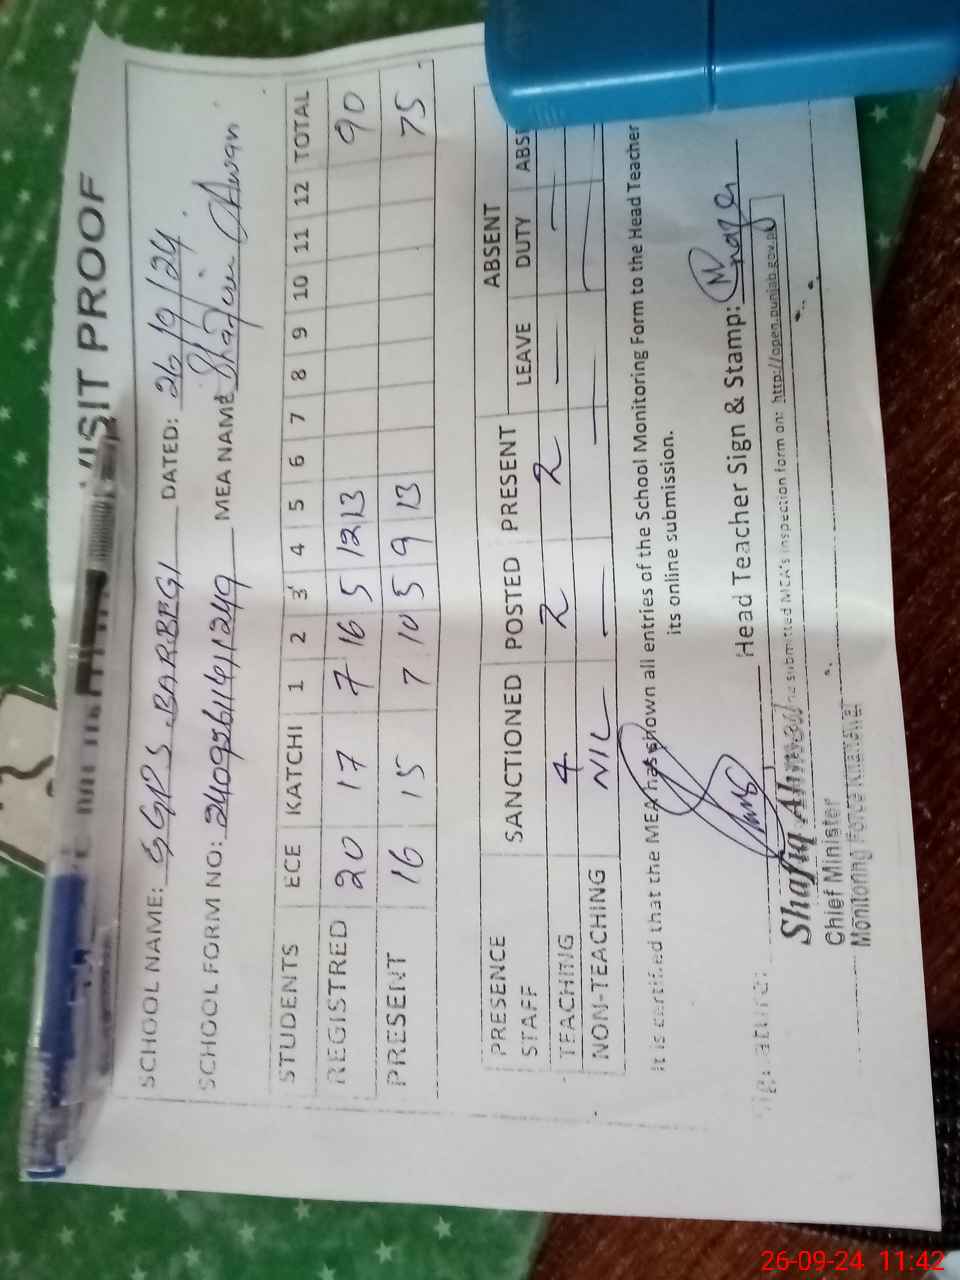 VISIT PROOF
SCHOOL NAME: GGPS BARBEGI DATED: 26/9/24
SCHOOL FORM NO: MEA NAME Awan
STUDENTS ECE KATCHI 1 2 3 4 5 6 7 8 9 10 11 12 TOTAL
REGISTRED 20 17 7 16 5 12 13 90
PRESENT 16 15 7 10 5 9 13 75
PRESENCE SANCTIONED POSTED PRESENT ABSENT
STAFF LEAVE DUTY ABS
TEACHING 4 2 2 — —
NON-TEACHING NIL — — — —
It is certified that the MEA has shown all entries of the School Monitoring Form to the Head Teacher
its online submission.
Head Teacher Sign & Stamp:
submitted MEA's inspection form on: http://open.punjab.gov.pk
Shafiq Ahmad
Chief Minister
Monitoring Force Khanewal
26-09-24 11:42